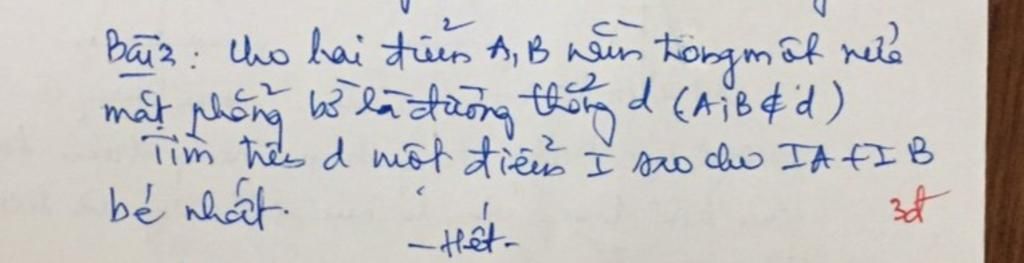 Bài 2: Cho hai điểm A, B nằm trong một nửa
mặt phẳng bờ là đường thẳng d (A; B ∉ d)
Tìm trên d một điểm I sao cho IA + IB
bé nhất.
3đ
- Hết -